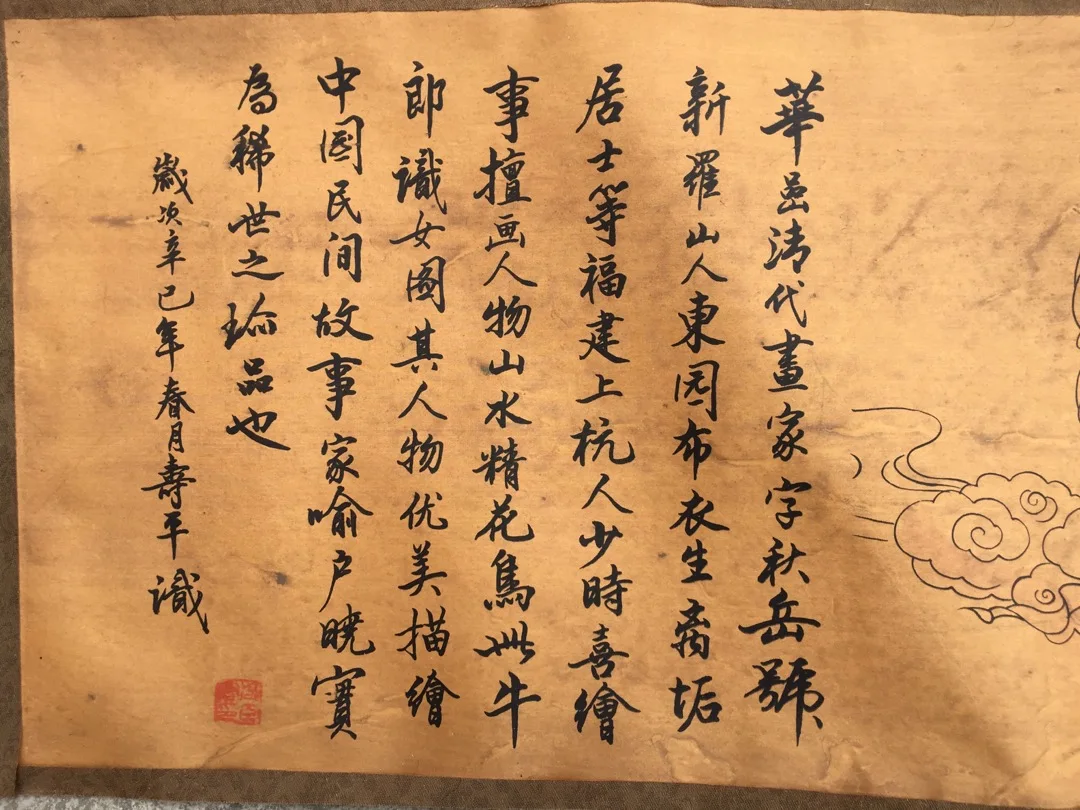 華嵒清代畫家字秋岳號
新羅山人東园布衣生离垢
居士等福建上杭人少時喜繪
事擅画人物山水精花鳥此牛
郎識女图其人物优美描繪
中国民间故事家喻户曉實
為稀世之珍品也
歲次辛巳年春月壽平識